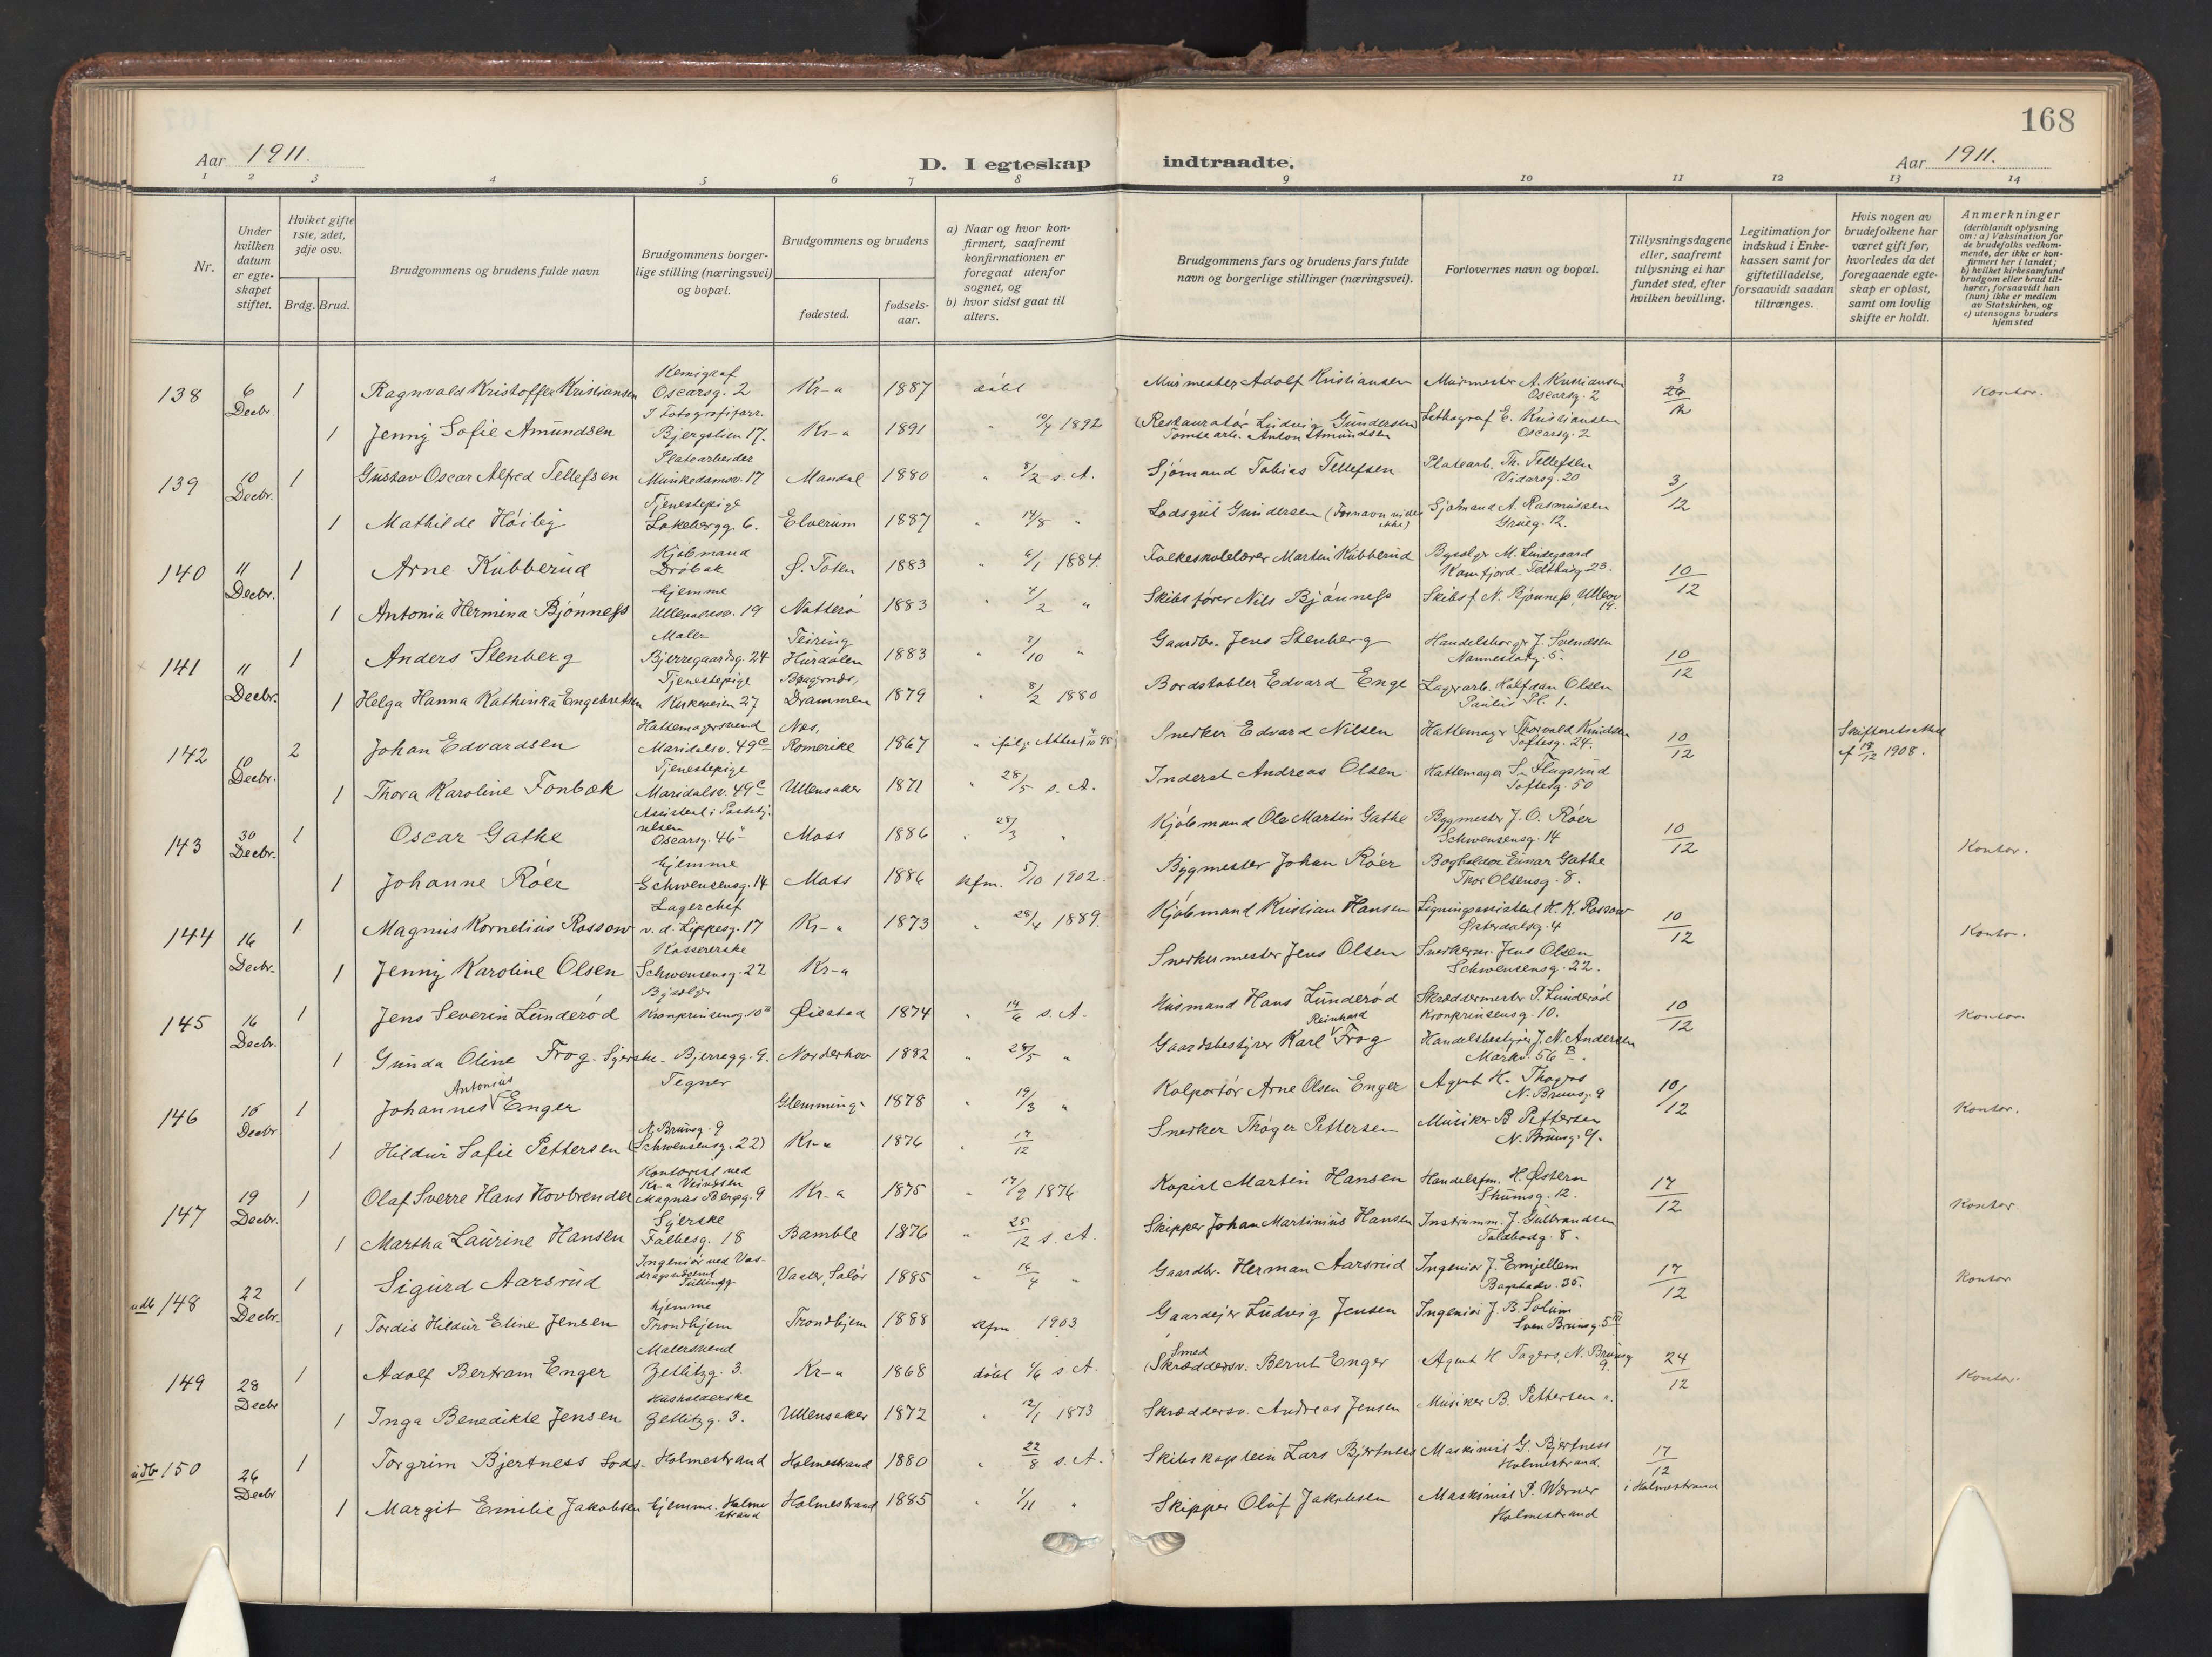 168
Aar 1911.
D. I egteskap indtraadte.
Aar 1911.
1 2 3 4 5 6 7 8 9 10 11 12 13 14
Nr.
Under hvilken datum er egteskapet stiftet.
Hviket gifte 1ste, 2det, 3dje osv.
Brdg. Brud.
Brudgommens og brudens fulde navn
Brudgommens borgerlige stilling (næringsvei) og bopæl.
Brudgommens og brudens
fødested.
fødselsaar.
a) Naar og hvor konfirmert, saafremt konfirmationen er foregaat utenfor sognet, og
b) hvor sidst gaat til alters.
Brudgommens fars og brudens fars fulde navn og borgerlige stillinger (næringsvei).
Forlovernes navn og bopæl.
Tillysningsdagene eller, saafremt tillysning ei har fundet sted, efter hvilken bevilling.
Legitimation for indskud i Enkekassen samt for giftetilladelse, forsaavidt saadan tiltrænges.
Hvis nogen av brudefolkene har været gift før, hvorledes da det foregaaende egteskap er opløst, samt om lovlig skifte er holdt.
Anmerkninger (deriblandt oplysning om: a) Vaksination for de brudefolks vedkommende, der ikke er konfirmert her i landet; b) hvilket kirkesamfund brudgom eller brud tilhører, forsaavidt han (hun) ikke er medlem av Statskirken, og c) utensogns bruders hjemsted
138 6 Decbr. 1 Ragnvald Kristoffer Kristiansen Kemigraf Oscarsg. 2 Kr-a 1887 døbt Murmester Adolf Kristiansen Murmester A. Kristiansen Oscarsg. 2 3/12 Kontor.
1 Jenny Sofie Amundsen Bjergslien 17. Kr-a 1891 " 10/4 1892 (Restauratør Ludvig Gundersen) Tomtearb. Anton Amundsen Lithograf E. Kristiansen Oscarsg. 2
139 10 Decbr. 1 Gustav Oscar Alfred Tellefsen Platearbeider Munkedamsv. 17 Mandal 1880 " 8/2 s. A. Sjømand Tobias Tellefsen Platearb. Th. Tellefsen Vidarsg. 20 3/12
1 Mathilde Høilig Tjenestepige Løkebergg. 6. Elverum 1887 " 14/8 " Lodsgut Gundersen (Fornavn vides ikke) Sjømand A. Rasmussen Grueg. 12.
140 11 Decbr. 1 Arne Kubberud Kjøbmand Drøbak Ø. Toten 1883 " 6/1 1884. Folkeskolelærer Martin Kubberud Byselgr M. Lindegaard 10/12
1 Antonia Hermina Bjønness hjemme Ullevaalsv. 19 Nøtterø 1883 " 4/2 " Skibsfører Nils Bjønness Skibsf N. Bjønness, Ullevv 19.
141 11 Decbr. 1 Anders Stenberg Maler Bjerregaardsg. 24 Feiring Hurdalen 1883 " 7/10 " Gaardbr. Jens Stenberg Handelsborgr J. Svendsen Nannestadg. 5. 10/12
1 Helga Hanna Kathinka Engebretsen Tjenestepige Kirkeveien 27 Bragernæs, Drammen 1879 " 8/2 1880 Bordstabler Edvard Enge Lagerarb. Halfdan Olsen Paulus Pl. 1.
142 10 Decbr. 2 Johan Edvardsen Hattemagersvend Maridalsv. 49c Næs, Romerike 1867 " ifølge Attest Snedker Edvard Nilsen Hattemager Thorvald Knudsen Toftesg. 24. 10/12 Skifteretsattest af 18/12 1908.
1 Thora Karoline Fonbæk Tjenestepige Maridalsv. 49c Ullensaker 1871 " 28/5 s. A. Inderst Andreas Olsen Hattemager S. Flugsrud Toftesg. 50
143 30 Decbr. 1 Oscar Gathe Assistent i Poststyrelsen Oscarsg. 46 Moss 1886 " 28/3 " Kjøbmand Ole Martin Gathe Bygmester J. O. Røer Schwensensg. 14 10/12 Kontor.
1 Johanne Røer hjemme Schwensensg. 14 Moss 1886 Kfm. 5/10 1902. Bygmester Johan Røer Bogholder Einar Gathe Thor Olsensg. 8.
144 16 Decbr. 1 Magnus Kornelius Rossow Lagerchef v. d. Lippesg. 17 Kr-a 1873 " 28/4 1889. Kjøbmand Kristian Hansen Ligningsassistent H. K. Rossow Østerdalsg. 4 10/12 Kontor.
1 Jenny Karoline Olsen Kassererske Schwensensg. 22 Kr-a Snedkermester Jens Olsen Snedkerm. Jens Olsen Schwensensg. 22.
145 16 Decbr. 1 Jens Severin Lunderød Bysælger Kronprinsensg. 10 III Øiestad 1874 " 14/6 s. A. Husmand Hans Lunderød Skræddermester P. Lunderød Kronprinsensg. 10. 10/12 Kontor
1 Gunda Oline Frog. Syerske. Bjerregg. 9. Norderhov 1882 " 28/5 " Gaardsbestyrer Karl Reinhard Frog Handelsbestyrer J. N. Andersen Markv. 56 B.
146 16 Decbr 1 Johannes Antonius Enger Tegner Glemminge 1878 " 19/3 " Kolportør Arne Olsen Enger Agent H. Thøgers N. Brunsg. 9 10/12 Kontor.
1 Hildur Sofie Pettersen N. Brunsg. 9 (Schwensensg. 22) Kr-a 1876 " 17/12 Snedker Thøger Pettersen Musiker B. Pettersen N. Brunsg. 9.
147 19 Decbr. 1 Olaf Sverre Hans Hovbrender Kontorist ved Kr-a Veivæsen Magnus Bergsg. 9 Kr-a 1875 " 17/9 1876 Kopist Martin Hansen Handelsfm. H. Østern 17/12 Kontor.
1 Martha Laurine Hansen Syerske Falbesg. 18 Bamble 1876 " 25/12 s. A. Skipper Johan Martinius Hansen Instrumm. J. Gulbrandsen Toldbodg. 8.
148 22 Decbr. 1 Sigurd Aarsrud Ingeniør ved Vasdragsvæsenet Tullinsg. Vaaler, Solør 1885 " 16/4 " Gaardbr. Herman Aarsrud Ingeniør J. Emjellem Bogstadv. 35. 17/12 Kontor
1 Tordis Hildur Eline Jensen hjemme Trondhjem Trondhjem 1888 Kfm 1903 Gaardejer Ludvig Jensen Ingeniør J. B. Solum Sven Brunsg. 5 III
149 28 Decbr 1 Adolf Bertram Enger Malersvend Zetlitzg. 3. Kr-a 1868 døbt 1/6 s. A. Smed (Skræddersv. Bernt Enger Agent H. Tøgers, N. Brunsg 9. 24/12 Kontor.
1 Inga Benedikte Jensen Husholderske Zetlitzg. 3. Ullensaker 1872 " 12/1 1873 Skræddersv. Andreas Jensen Musiker B. Pettersen ".
150 26 Decbr 1 Torgrim Bjertness Lods. Holmestrand Holmestrand 1880 " 22/8 s. A. Skibskaptein Lars Bjertness Maskinist G. Bjertness Holmestrand. 17/12 i Holmestrand
1 Margit Emilie Jakobsen hjemme. Holmestrand Holmestrand 1885 " 1/11 " Skipper Oluf Jakobsen Maskinist P. Werner Holmestrand